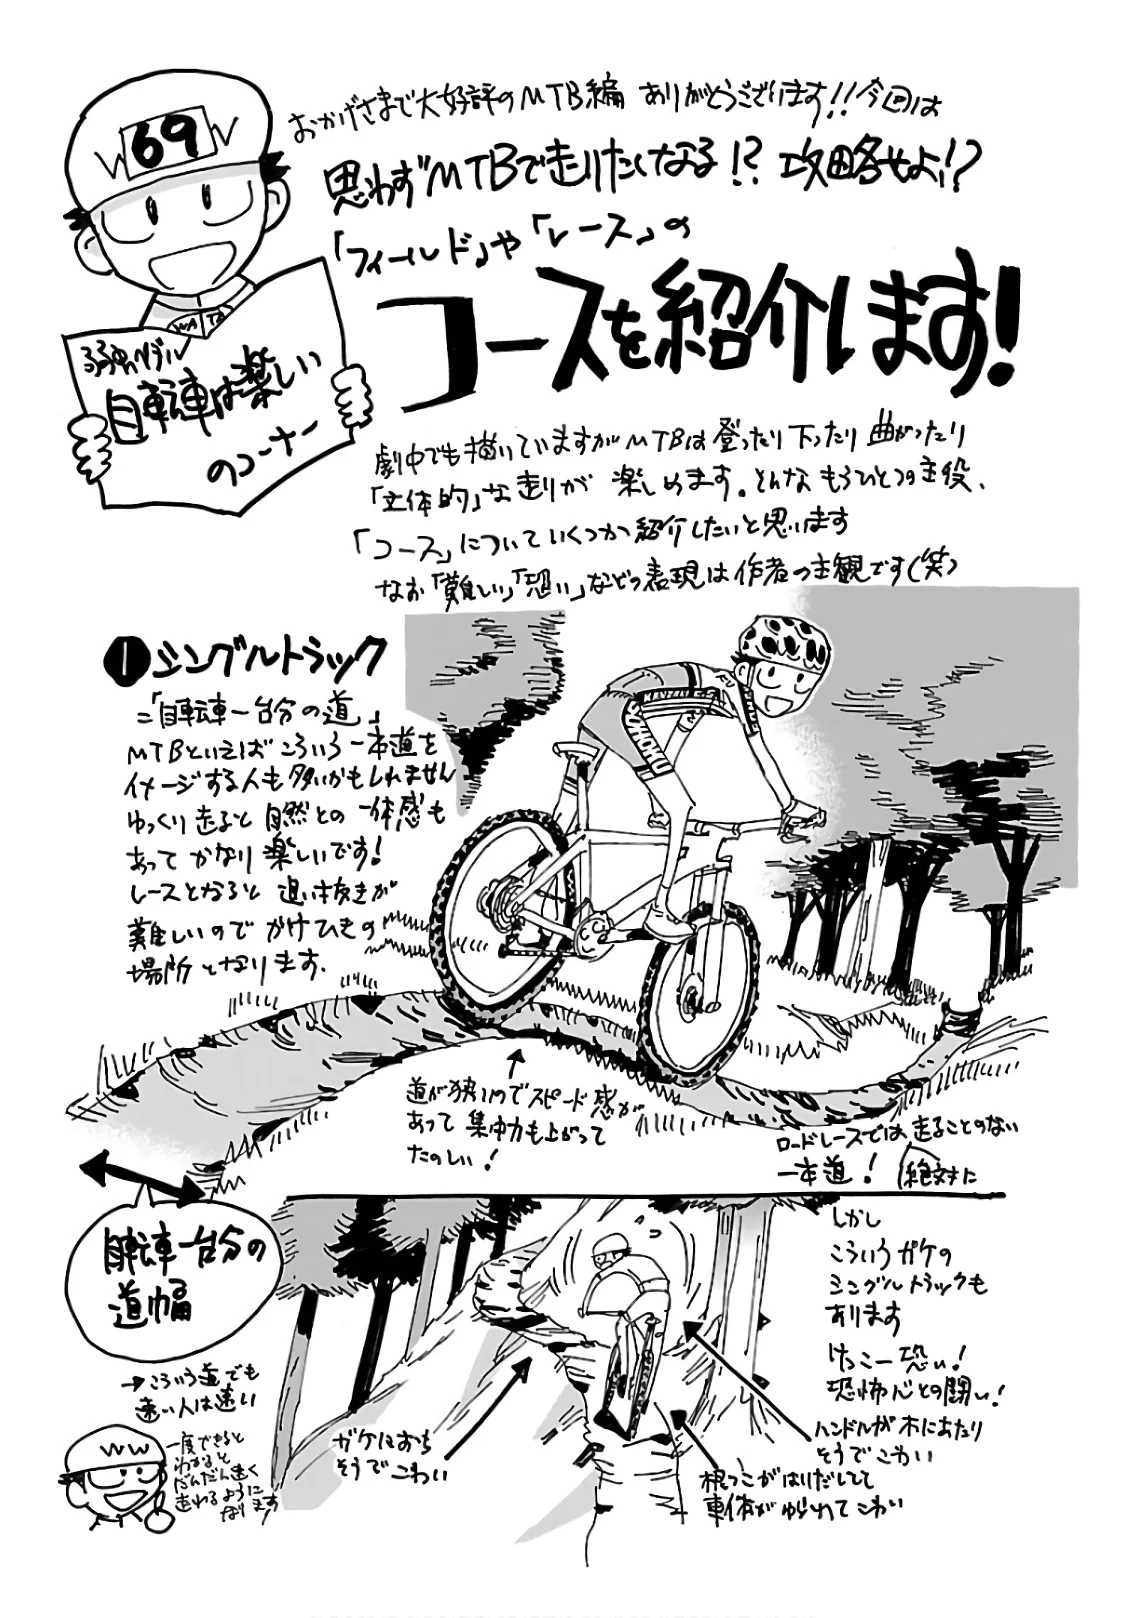 おかげさまで大好評のMTB編 ありがとうございます!!今回は
思わずMTBで走りたくなる!? 攻略せよ!?
「フィールド」や「レース」の
コースを紹介します!
69
W W
WA TA
自転車は楽しい
のコーナー
劇中でも描いていますがMTBは登ったり下ったり曲がったり
「立体的」な走りが 楽しめます。そんな もうひとつの主役、
「コース」についていくつか紹介したいと思います
なお「難しい」「恐い」などの表現は作者の主観です(笑)
1 シングルトラック
=「自転車一台分の道」
MTBといえば こういう一本道を
イメージする人も多いかもしれません
ゆっくり走ると 自然との一体感も
あって かなり楽しいです!
レースとなると 追い抜きが
難しいので かけひきの
場所となります。
SOHOKU
道が狭いのでスピード感が
あって 集中力も上がって
たのしい!
ロードレースでは 走ることのない
一本道! 絶対に
自転車一台分の
道幅
→こういう道でも
速い人は速い
WW
一度できると
わかると
だんだん速く
走れるように
なります
しかし
こういうガケの
シングルトラックも
あります
けっこー恐い!
恐怖心との闘い!
ガケにおち
そうで こわい
ハンドルが木にあたり
そうで こわい
根っこがはりだしてて
車体がゆられて こわい